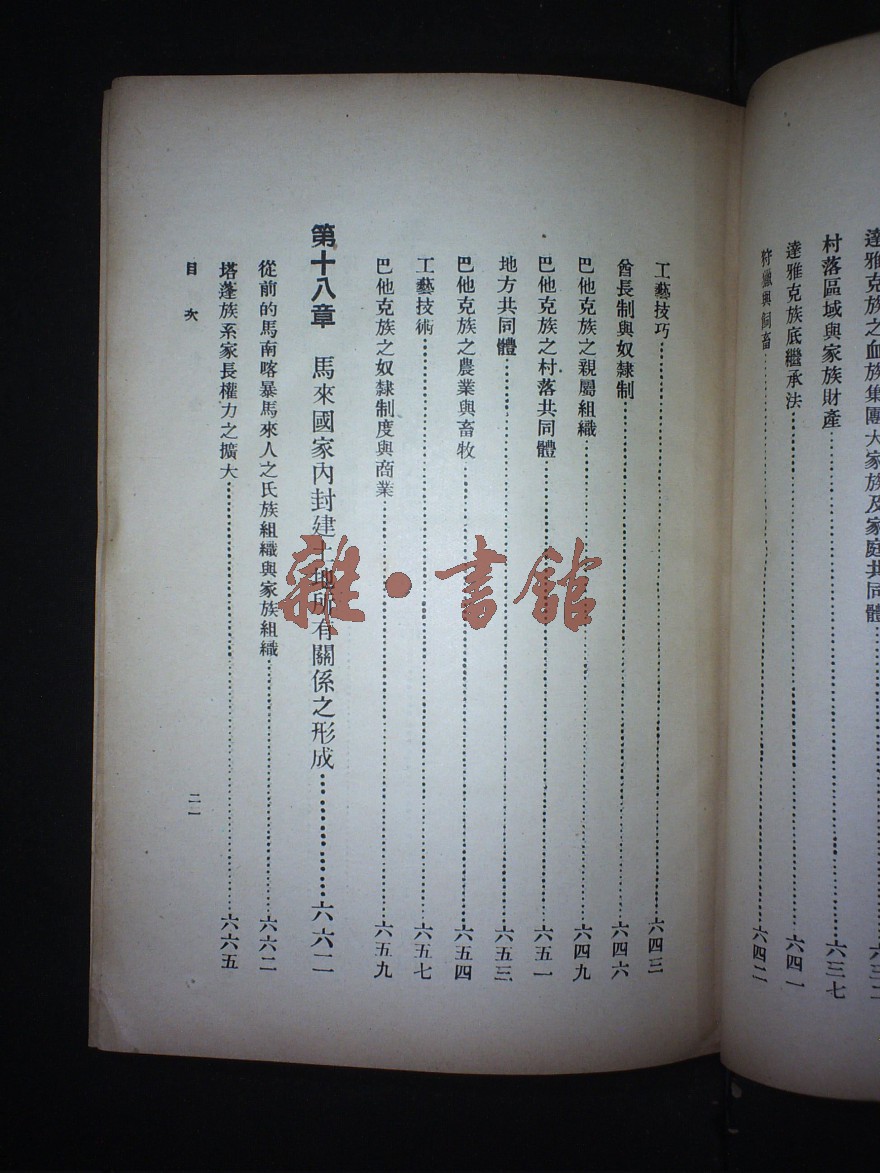 達雅克族之血族集團大家族及家庭共同體
村落區域與家族財產……六三七
達雅克族底繼承法……六四一
狩獵與飼畜……六四二
工藝技巧……六四三
酋長制與奴隸制……六四六
巴他克族之親屬組織……六四九
巴他克族之村落共同體……六五一
地方共同體……六五三
巴他克族之農業與畜牧……六五四
工藝技術……六五七
巴他克族之奴隸制度與商業……六五九
第十八章 馬來國家內封建土地所有關係之形成……六六二
從前的馬南喀暴馬來人之氏族組織與家族組織……六六二
塔蓬族系家長權力之擴大……六六五
目次
二一
雜·書館